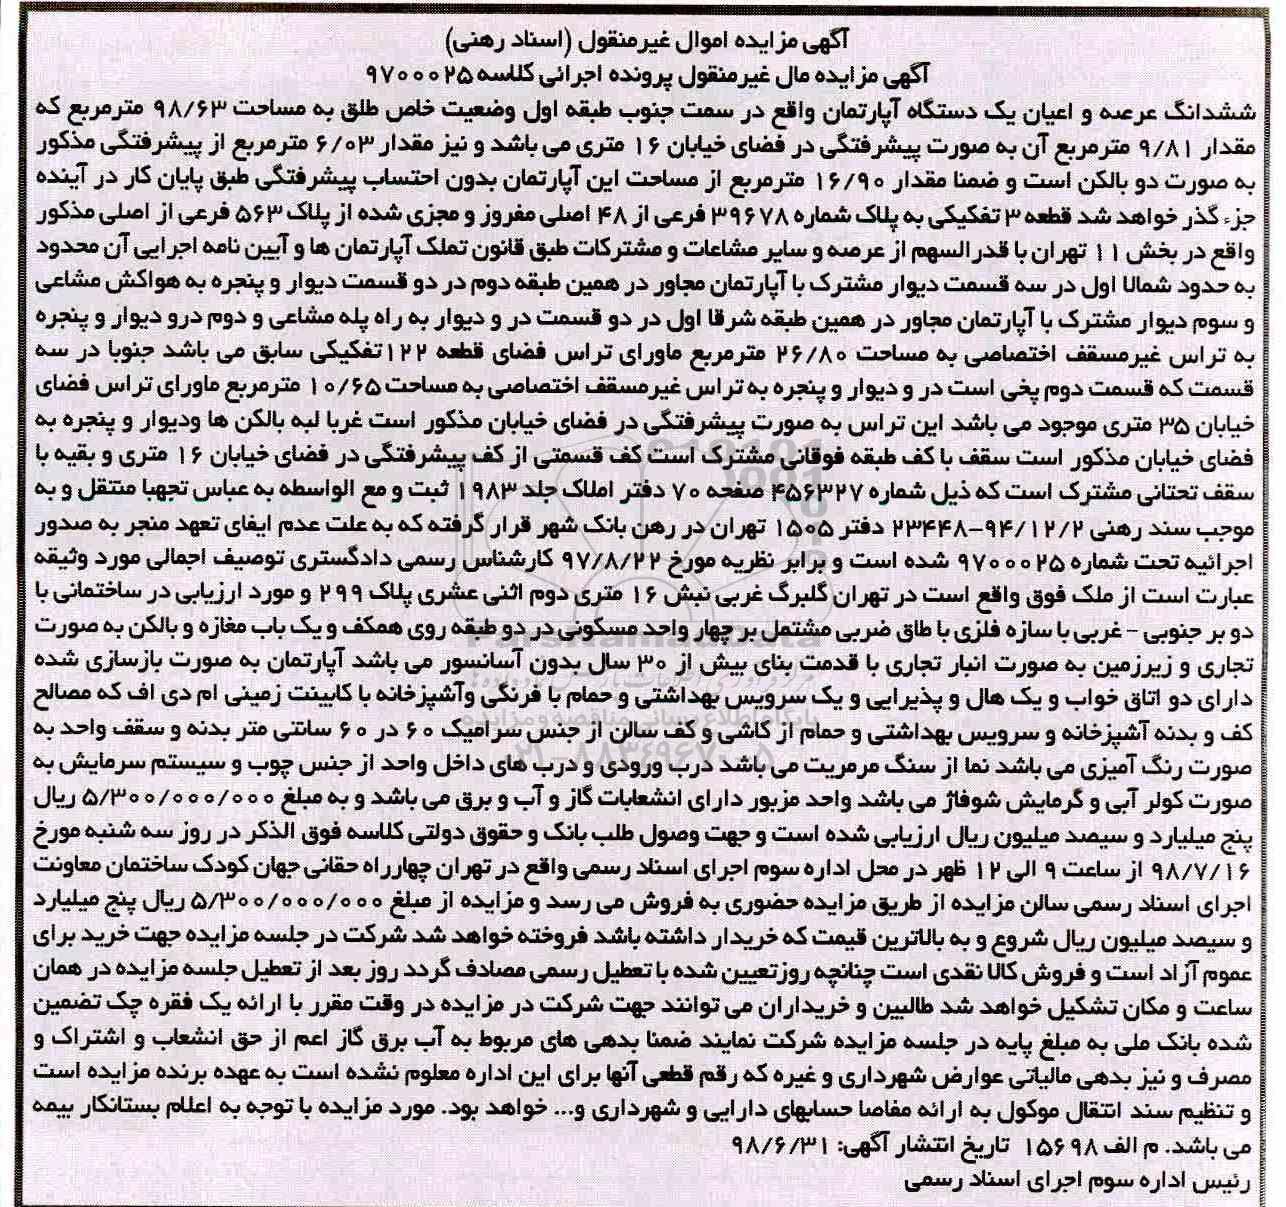 آگهی مزایده اموال غیرمنقول (اسناد رهنی)
آگهی مزایده مال غیرمنقول پرونده اجرائی کلاسه ۹۷۰۰۰۲۵
ششدانگ عرصه و اعیان یک دستگاه آپارتمان واقع در سمت جنوب طبقه اول وضعیت خاص طلق به مساحت ۹۸/۶۳ مترمربع که
مقدار ۹/۸۱ مترمربع آن به صورت پیشرفتگی در فضای خیابان ۱۶ متری می باشد و نیز مقدار ۶/۰۳ مترمربع از پیشرفتگی مذکور
به صورت دو بالکن است و ضمنا مقدار ۱۶/۹۰ مترمربع از مساحت این آپارتمان بدون احتساب پیشرفتگی طبق پایان کار در آینده
جزء گذر خواهد شد قطعه ۳ تفکیکی به پلاک شماره ۳۹۶۷۸ فرعی از ۴۸ اصلی مفروز و مجزی شده از پلاک ۵۶۳ فرعی از اصلی مذکور
واقع در بخش ۱۱ تهران با قدرالسهم از عرصه و سایر مشاعات و مشترکات طبق قانون تملک آپارتمان ها و آیین نامه اجرایی آن محدود
به حدود شمالا اول در سه قسمت دیوار مشترک با آپارتمان مجاور در همین طبقه دوم در دو قسمت دیوار و پنجره به هواکش مشاعی
و سوم دیوار مشترک با آپارتمان مجاور در همین طبقه شرقا اول در دو قسمت در و دیوار به راه پله مشاعی و دوم درو دیوار و پنجره
به تراس غیرمسقف اختصاصی به مساحت ۲۶/۸۰ مترمربع ماورای تراس فضای قطعه ۱۲۲تفکیکی سابق می باشد جنوبا در سه
قسمت که قسمت دوم پخی است در و دیوار و پنجره به تراس غیرمسقف اختصاصی به مساحت ۱۰/۶۵ مترمربع ماورای تراس فضای
خیابان ۳۵ متری موجود می باشد این تراس به صورت پیشرفتگی در فضای خیابان مذکور است غربا لبه بالکن ها ودیوار و پنجره به
فضای خیابان مذکور است سقف با کف طبقه فوقانی مشترک است کف قسمتی از کف پیشرفتگی در فضای خیابان ۱۶ متری و بقیه با
سقف تحتانی مشترک است که ذیل شماره ۴۵۶۳۲۷ صفحه ۷۰ دفتر املاک جلد ۱۹۸۳ ثبت و مع الواسطه به عباس تجهبا منتقل و به
موجب سند رهنی ۹۴/۱۲/۲-۲۳۴۴۸ دفتر ۱۵۰۵ تهران در رهن بانک شهر قرار گرفته که به علت عدم ایفای تعهد منجر به صدور
اجرائیه تحت شماره ۹۷۰۰۰۲۵ شده است و برابر نظریه مورخ ۹۷/۸/۲۲ کارشناس رسمی دادگستری توصیف اجمالی مورد وثیقه
عبارت است از ملک فوق واقع است در تهران گلبرگ غربی نبش ۱۶ متری دوم اثنی عشری پلاک ۲۹۹ و مورد ارزیابی در ساختمانی با
دو بر جنوبی - غربی با سازه فلزی با طاق ضربی مشتمل بر چهار واحد مسکونی در دو طبقه روی همکف و یک باب مغازه و بالکن به صورت
تجاری و زیرزمین به صورت انبار تجاری با قدمت بنای بیش از ۳۰ سال بدون آسانسور می باشد آپارتمان به صورت بازسازی شده
دارای دو اتاق خواب و یک هال و پذیرایی و یک سرویس بهداشتی و حمام با فرنگی وآشپزخانه با کابینت زمینی ام دی اف که مصالح
کف و بدنه آشپزخانه و سرویس بهداشتی و حمام از کاشی و کف سالن از جنس سرامیک ۶۰ در ۶۰ سانتی متر بدنه و سقف واحد به
صورت رنگ آمیزی می باشد نما از سنگ مرمریت می باشد درب ورودی و درب های داخل واحد از جنس چوب و سیستم سرمایش به
صورت کولر آبی و گرمایش شوفاژ می باشد واحد مزبور دارای انشعابات گاز و آب و برق می باشد و به مبلغ ۵/۳۰۰/۰۰۰/۰۰۰ ریال
پنج میلیارد و سیصد میلیون ریال ارزیابی شده است و جهت وصول طلب بانک و حقوق دولتی کلاسه فوق الذکر در روز سه شنبه مورخ
۹۸/۷/۱۶ از ساعت ۹ الی ۱۲ ظهر در محل اداره سوم اجرای اسناد رسمی واقع در تهران چهارراه حقانی جهان کودک ساختمان معاونت
اجرای اسناد رسمی سالن مزایده از طریق مزایده حضوری به فروش می رسد و مزایده از مبلغ ۵/۳۰۰/۰۰۰/۰۰۰ ریال پنج میلیارد
و سیصد میلیون ریال شروع و به بالاترین قیمت که خریدار داشته باشد فروخته خواهد شد شرکت در جلسه مزایده جهت خرید برای
عموم آزاد است و فروش کالا نقدی است چنانچه روزتعیین شده با تعطیل رسمی مصادف گردد روز بعد از تعطیل جلسه مزایده در همان
ساعت و مکان تشکیل خواهد شد طالبین و خریداران می توانند جهت شرکت در مزایده در وقت مقرر با ارائه یک فقره چک تضمین
شده بانک ملی به مبلغ پایه در جلسه مزایده شرکت نمایند ضمنا بدهی های مربوط به آب برق گاز اعم از حق انشعاب و اشتراک و
مصرف و نیز بدهی مالیاتی عوارض شهرداری و غیره که رقم قطعی آنها برای این اداره معلوم نشده است به عهده برنده مزایده است
و تنظیم سند انتقال موکول به ارائه مفاصا حسابهای دارایی و شهرداری و... خواهد بود. مورد مزایده با توجه به اعلام بستانکار بیمه
می باشد. م الف ۱۵۶۹۸ تاریخ انتشار آگهی: ۹۸/۶/۳۱
رئیس اداره سوم اجرای اسناد رسمی